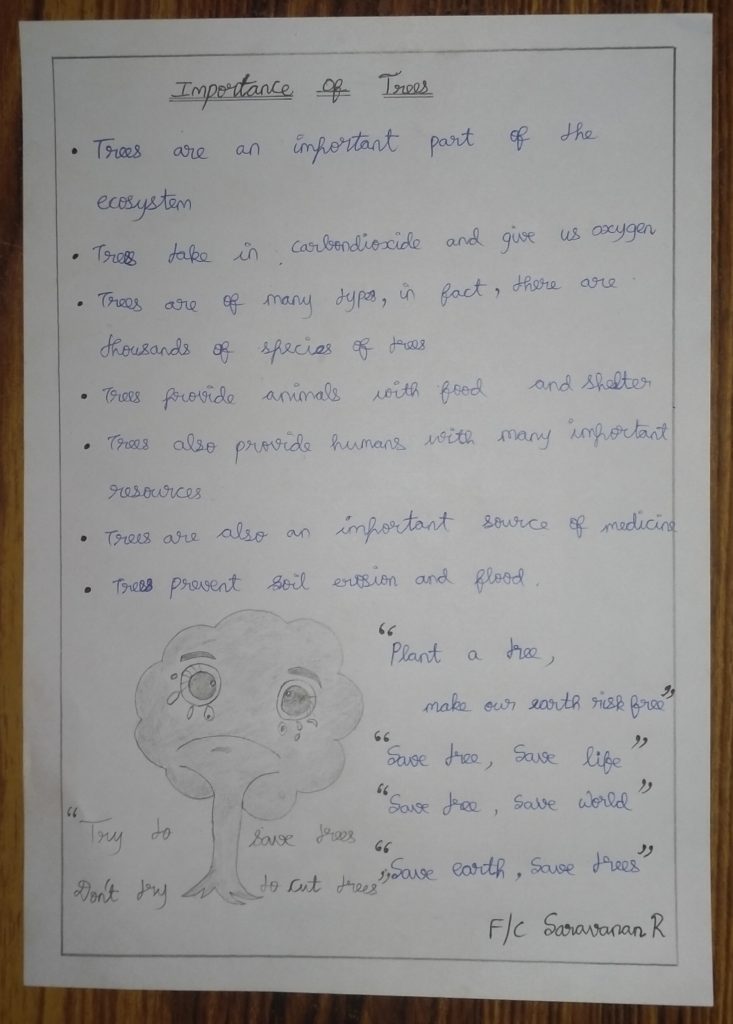 Importance Of Trees
• Trees are an important part of the
ecosystem
• Trees take in carbondioxide and give us oxygen
• Trees are of many types, in fact, there are
thousands of species of trees
• Trees provide animals with food and shelter
• Trees also provide humans with many important
resources
• Trees are also an important source of medicine
• Trees prevent soil erosion and flood.
“Plant a tree,
make our earth risk free”
“Save tree, Save life”
“Save tree, Save world”
“Try to save trees
Don't try to cut trees”
“Save earth, Save trees”
F/C Saravanan R